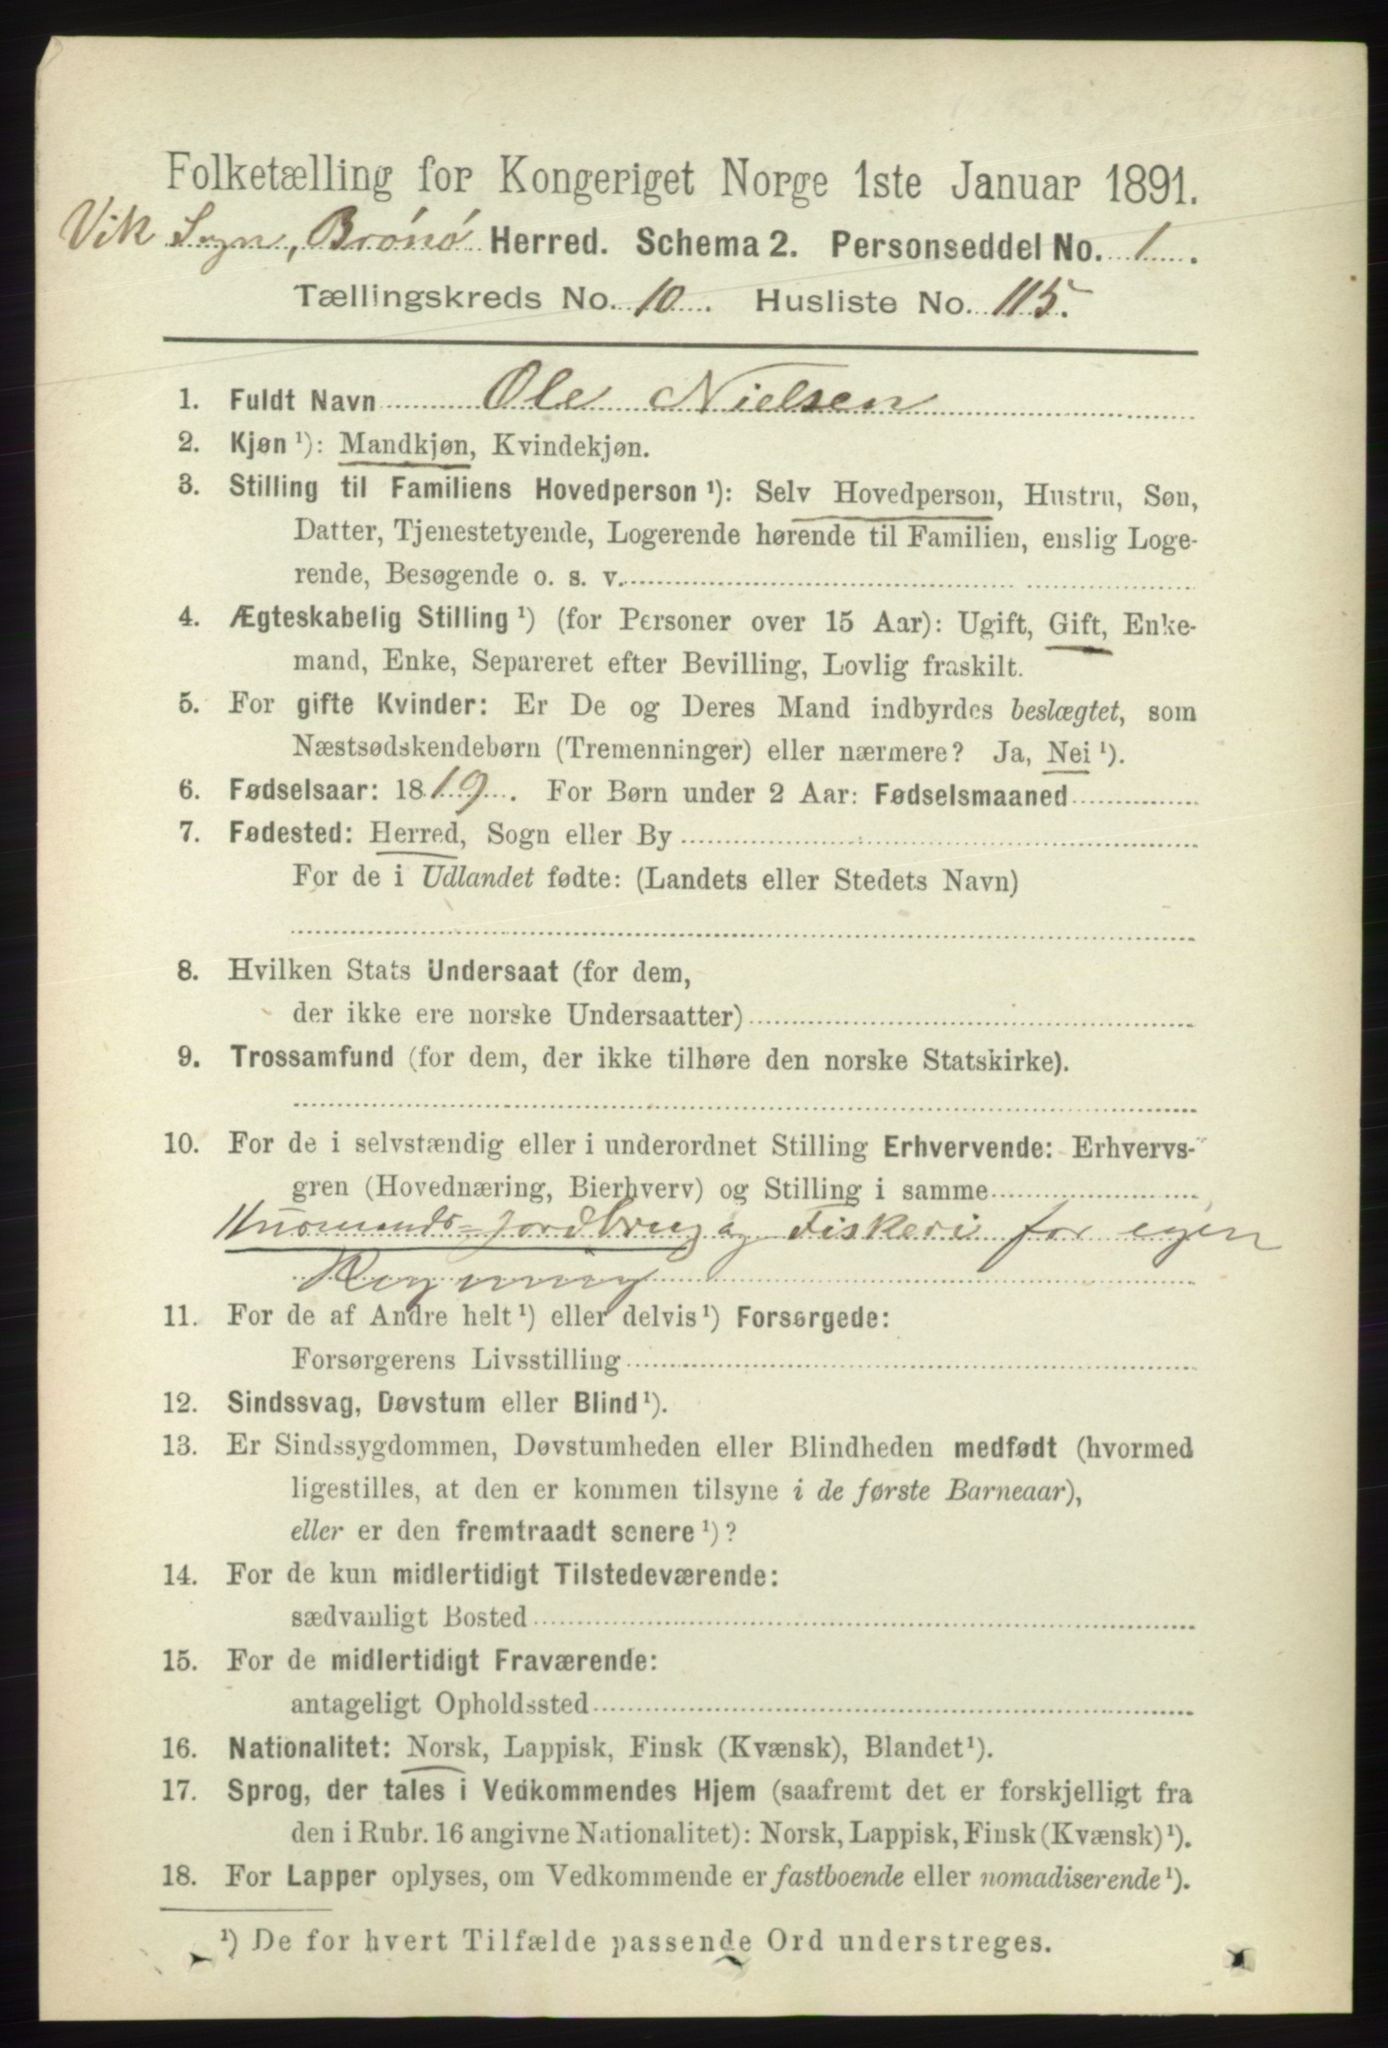 Folketælling for Kongeriget Norge 1ste Januar 1891.
Vik Sogn, Brönö Herred. Schema 2. Personseddel No. 1.
Tællingskreds No. 10. Husliste No. 115.
1. Fuldt Navn Ole Nielsen
2. Kjøn ¹): Mandkjøn, Kvindekjøn.
3. Stilling til Familiens Hovedperson ¹): Selv Hovedperson, Hustru, Søn,
Datter, Tjenestetyende, Logerende hørende til Familien, enslig Loge-
rende, Besøgende o. s. v.
4. Ægteskabelig Stilling ¹) (for Personer over 15 Aar): Ugift, Gift, Enke-
mand, Enke, Separeret efter Bevilling, Lovlig fraskilt.
5. For gifte Kvinder: Er De og Deres Mand indbyrdes beslægtet, som
Næstsødskendebørn (Tremenninger) eller nærmere? Ja, Nei ¹).
6. Fødselsaar: 1819. For Børn under 2 Aar: Fødselsmaaned
7. Fødested: Herred, Sogn eller By
For de i Udlandet fødte: (Landets eller Stedets Navn)
8. Hvilken Stats Undersaat (for dem,
der ikke ere norske Undersaatter)
9. Trossamfund (for dem, der ikke tilhøre den norske Statskirke).
10. For de i selvstændig eller i underordnet Stilling Erhvervende: Erhvervs-
gren (Hovednæring, Bierhverv) og Stilling i samme
Husmands-Jordbrug og Fiskeri for egen
Regning
11. For de af Andre helt ¹) eller delvis ¹) Forsørgede:
Forsørgerens Livsstilling
12. Sindssvag, Døvstum eller Blind ¹).
13. Er Sindssygdommen, Døvstumheden eller Blindheden medfødt (hvormed
ligestilles, at den er kommen tilsyne i de første Barneaar),
eller er den fremtraadt senere ¹)?
14. For de kun midlertidigt Tilstedeværende:
sædvanligt Bosted
15. For de midlertidigt Fraværende:
antageligt Opholdssted
16. Nationalitet: Norsk, Lappisk, Finsk (Kvænsk), Blandet ¹).
17. Sprog, der tales i Vedkommendes Hjem (saafremt det er forskjelligt fra
den i Rubr. 16 angivne Nationalitet): Norsk, Lappisk, Finsk (Kvænsk) ¹).
18. For Lapper oplyses, om Vedkommende er fastboende eller nomadiserende ¹).
¹) De for hvert Tilfælde passende Ord understreges.